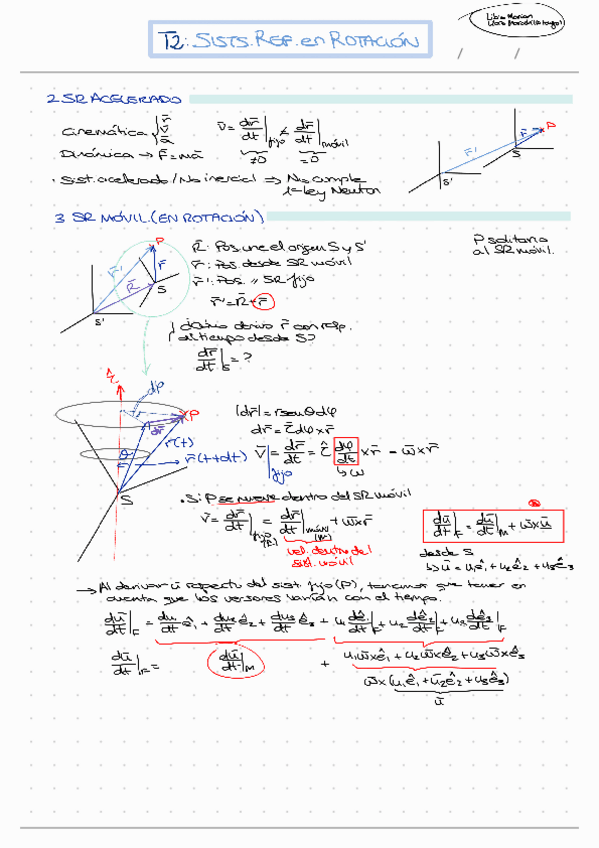 T2: SISTS. REF. en ROTACIÓN
Libro Marion
/ /
2 SR ACELERADO
Cinemática { r̄ v̄ ā
v̄ = dr̄/dt |fijo ≠ dr̄/dt |móvil
≠0 =0
Dinámica → F̄ = mā
· Sist. acelerado / No inercial ⇒ No cumple
1ª Ley Newton
r̄' r̄ P
S' S
3 SR MÓVIL (EN ROTACIÓN)
R̄: Pos. une el origen S y S'
r̄: Pos. desde SR móvil
r̄': Pos. " SR fijo
r̄' = R̄ + r̄
P solitario
al SR móvil.
P
r̄' r̄
R̄ S
S'
¿Cómo derivo r̄ con resp.
al tiempo desde S?
dr̄/dt |S = ?
dφ
P
dr̄
r̄(t)
θ
r̄(t+dt)
S
|dr̄| = r senθ dφ
dr̄ = τ̂ dφ × r̄
v̄ |fijo = dr̄/dt = τ̂ dφ/dt × r̄ = ω̄ × r̄
↳ ω
· Si P se mueve dentro del SR móvil
v̄ = dr̄/dt |fijo (F) = dr̄/dt |móvil (M) + ω̄ × r̄
vel. dentro del
sist. móvil
dū/dt |F = dū/dt |M + ω̄ × ū
desde S
↳ ū = u₁ê₁ + u₂ê₂ + u₃ê₃
→ Al derivar ū respecto del sist. fijo (F), tenemos que tener en
cuenta que los versores varían con el tiempo.
dū/dt |F = du₁/dt ê₁ + du₂/dt ê₂ + du₃/dt ê₃ + u₁ dê₁/dt |F + u₂ dê₂/dt |F + u₃ dê₃/dt |F
dū/dt |F = dū/dt |M + u₁ω̄×ê₁ + u₂ω̄×ê₂ + u₃ω̄×ê₃
ω̄ × (u₁ê₁ + u₂ê₂ + u₃ê₃)
ū